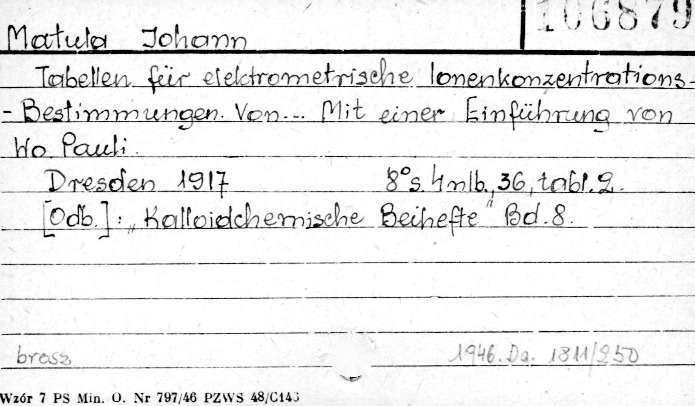 106879
Matula Johann
Tabellen für elektrometrische Ionenkonzentrations-
- Bestimmungen. Von... Mit einer Einführung von
Wo Pauli.
Dresden 1917 8° s. 4 nlb., 36, tabl. 2.
[Odb.]: „Kolloidchemische Beihefte" Bd. 8.
brosz 1946. Da. 1811/250
Wzór 7 PS Min. O. Nr 797/46 PZWS 48/C143